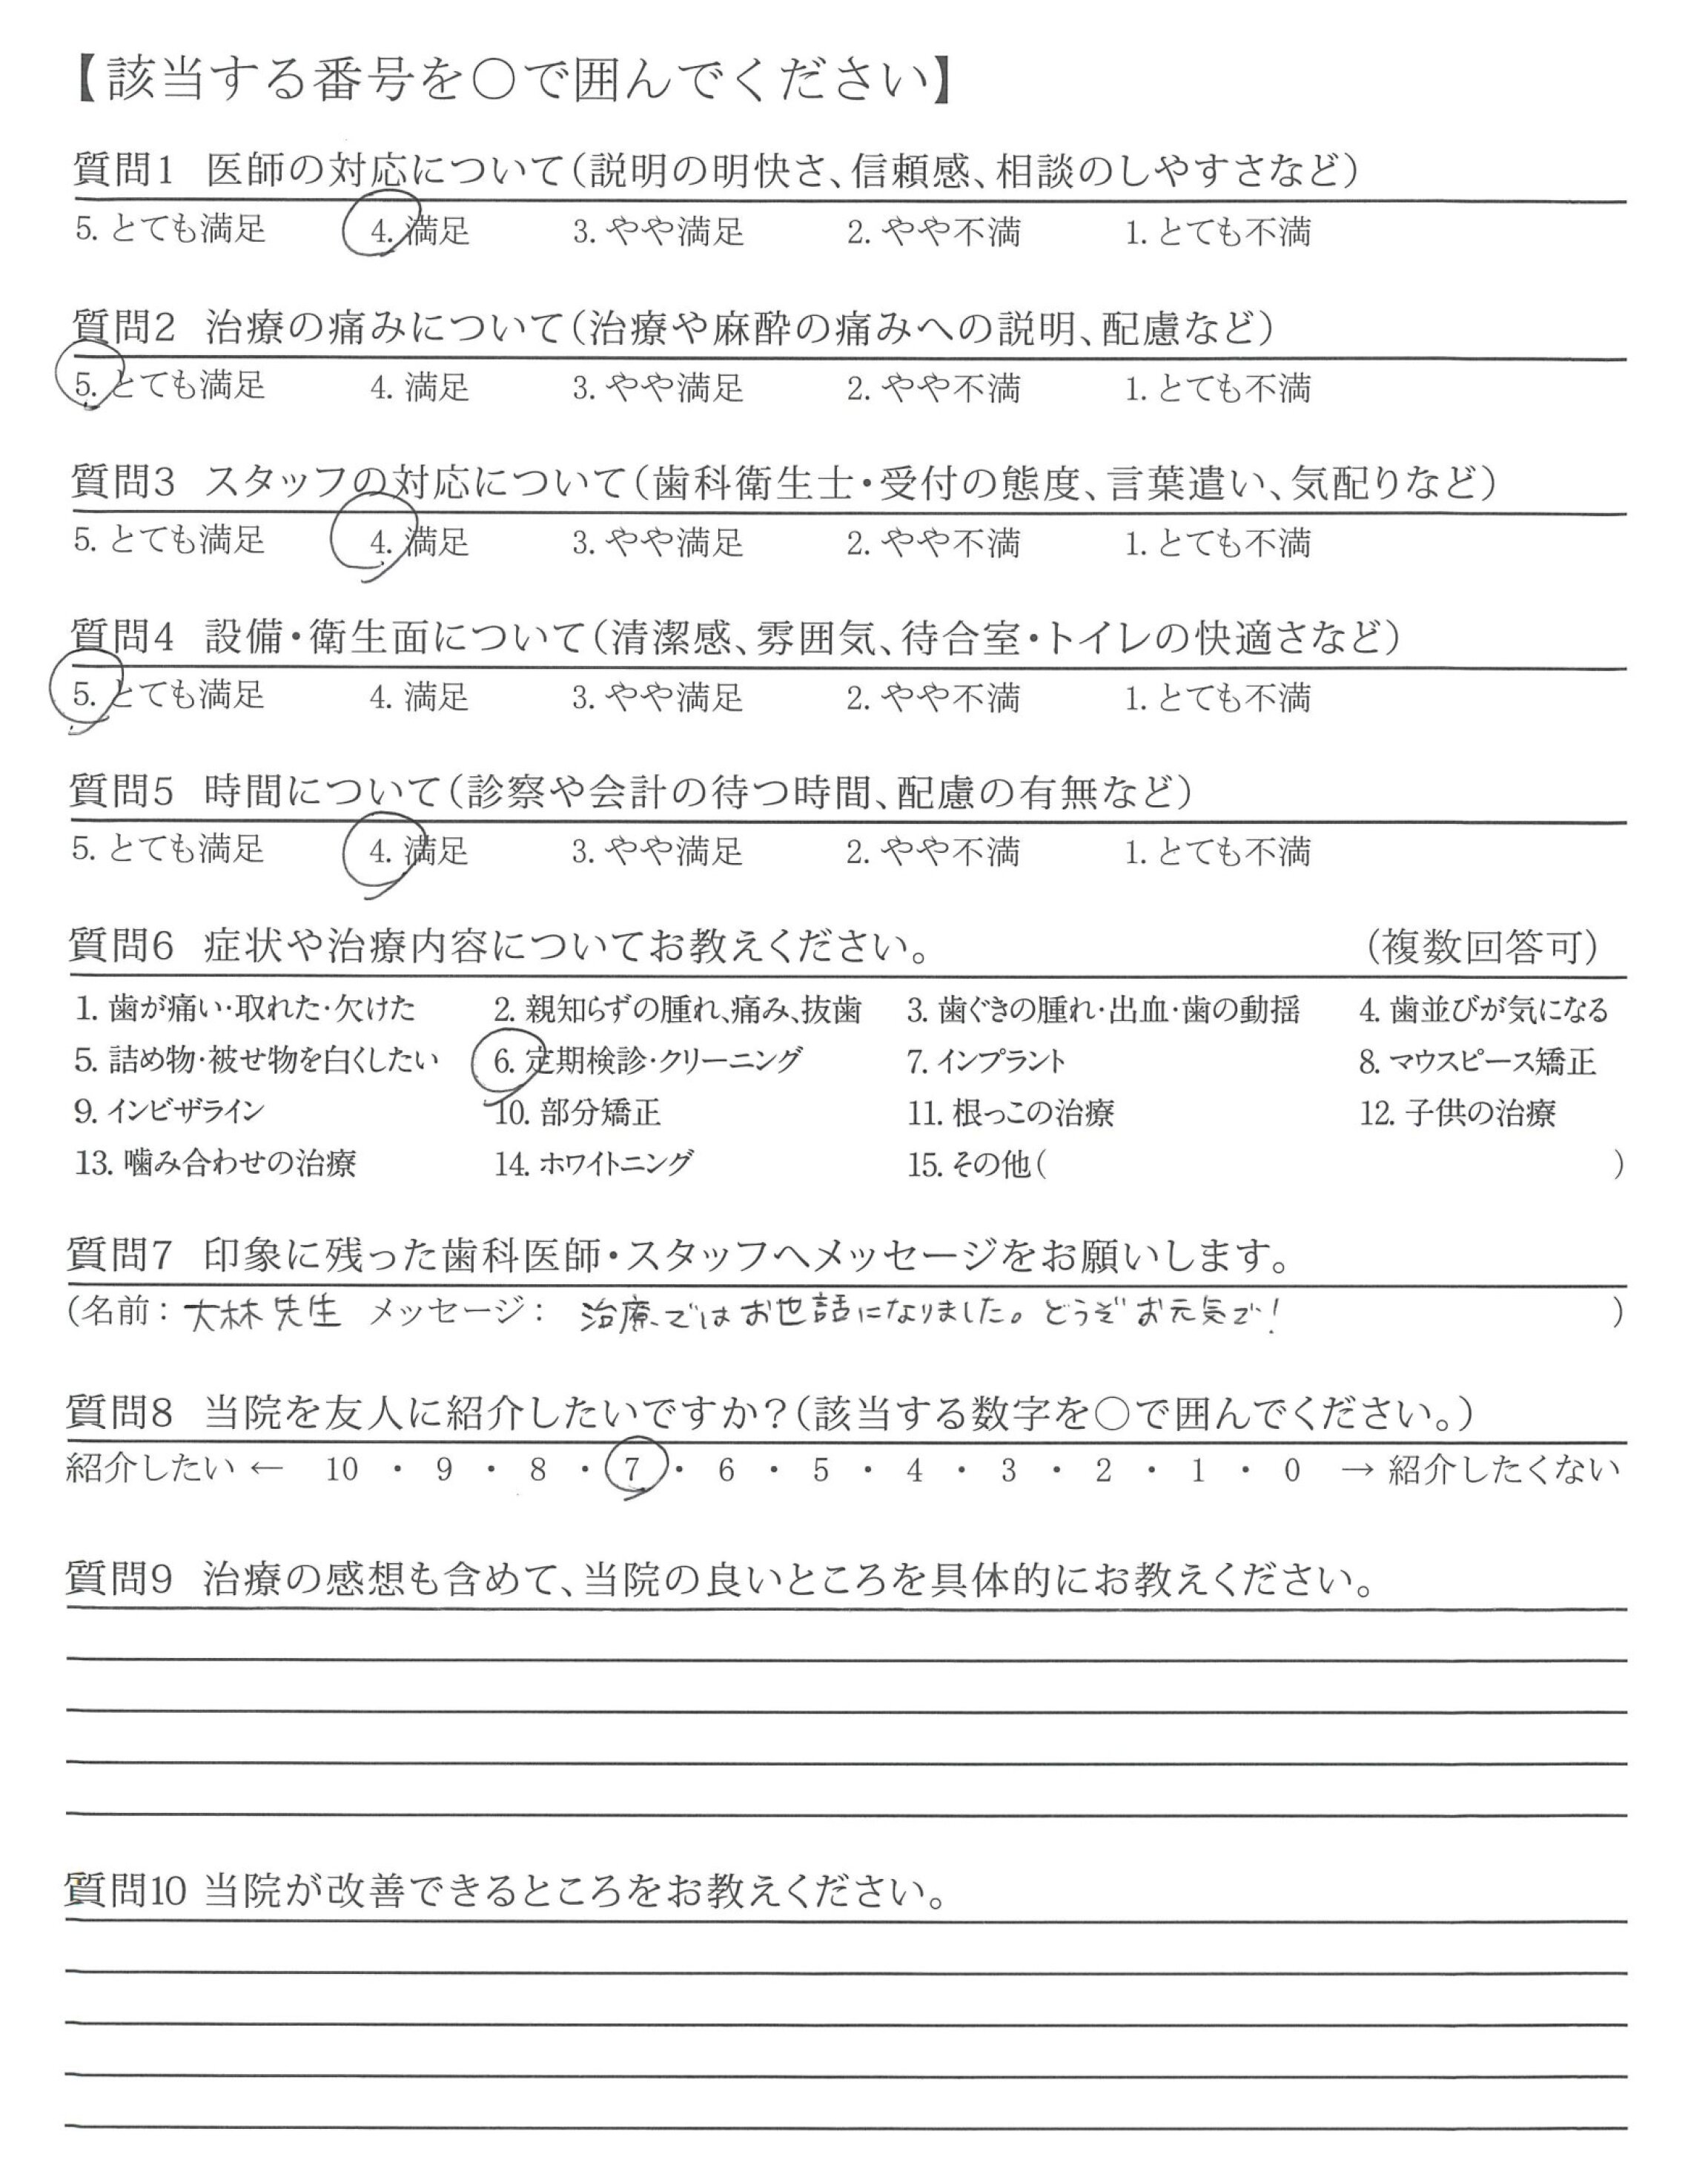 【該当する番号を○で囲んでください】
質問1 医師の対応について（説明の明快さ、信頼感、相談のしやすさなど）
5. とても満足 4. 満足 3. やや満足 2. やや不満 1. とても不満
質問2 治療の痛みについて（治療や麻酔の痛みへの説明、配慮など）
5. とても満足 4. 満足 3. やや満足 2. やや不満 1. とても不満
質問3 スタッフの対応について（歯科衛生士・受付の態度、言葉遣い、気配りなど）
5. とても満足 4. 満足 3. やや満足 2. やや不満 1. とても不満
質問4 設備・衛生面について（清潔感、雰囲気、待合室・トイレの快適さなど）
5. とても満足 4. 満足 3. やや満足 2. やや不満 1. とても不満
質問5 時間について（診察や会計の待つ時間、配慮の有無など）
5. とても満足 4. 満足 3. やや満足 2. やや不満 1. とても不満
質問6 症状や治療内容についてお教えください。 （複数回答可）
1. 歯が痛い・取れた・欠けた 2. 親知らずの腫れ、痛み、抜歯 3. 歯ぐきの腫れ・出血・歯の動揺 4. 歯並びが気になる
5. 詰め物・被せ物を白くしたい 6. 定期検診・クリーニング 7. インプラント 8. マウスピース矯正
9. インビザライン 10. 部分矯正 11. 根っこの治療 12. 子供の治療
13. 噛み合わせの治療 14. ホワイトニング 15. その他（ ）
質問7 印象に残った歯科医師・スタッフへメッセージをお願いします。
（名前：大林先生 メッセージ： 治療ではお世話になりました。どうぞお元気で！ ）
質問8 当院を友人に紹介したいですか？（該当する数字を○で囲んでください。）
紹介したい ← 10 ・ 9 ・ 8 ・ 7 ・ 6 ・ 5 ・ 4 ・ 3 ・ 2 ・ 1 ・ 0 → 紹介したくない
質問9 治療の感想も含めて、当院の良いところを具体的にお教えください。
質問10 当院が改善できるところをお教えください。